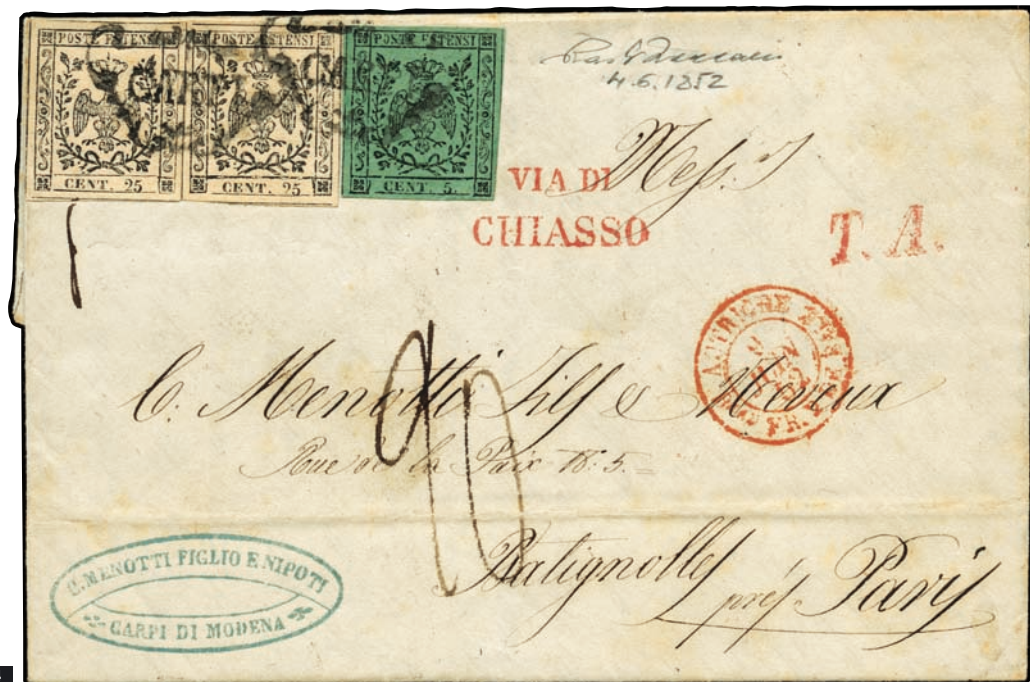 POSTE ESTENSI
CENT. 25
POSTE ESTENSI
CENT. 25
POSTE ESTENSI
CENT. 5.
4.6.1852
VIA DI
CHIASSO
Mess.
T. A.
AUTRICHE
FR.
C. Menotti Fils & Neveux
Rue de la Paix N: 5.
Batignolles
près Paris
C. MENOTTI FIGLIO E NIPOTI
CARPI DI MODENA